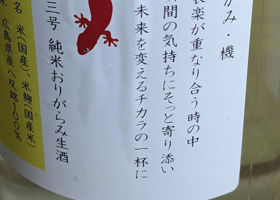 がみ・機
哀楽が重なり合う時の中
間の気持ちにそっと寄り添い
未来を変えるチカラの一杯に
三号 純米おりがらみ生酒
名 米(国産)、米麹(国産米)
米 広島県産八反錦100%